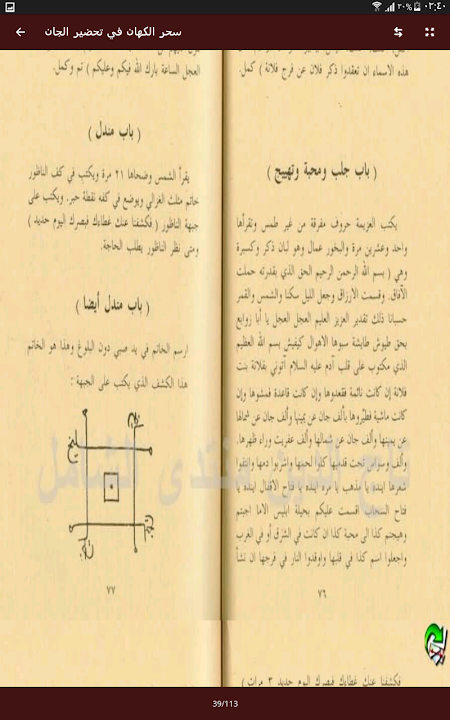 ٠٢:٤٠
٢٠%
سحر الكهان في تحضير الجان
هذه الاسماء ان تعقدوا ذكر فلان عن فرج فلانة ) كمل.
( باب جلب ومحبة وتهييج )
يكتب العزيمة حروف مفرقة من غير طمس وتقرأها
واحد وعشرين مرة والبخور عمال وهو لبان ذكر وكسبرة
وهي ( بسم الله الرحمن الرحيم الحق الذي بقدرته حملت
الآفاق. وقسمت الارزاق وجعل الليل سكنا والشمس والقمر
حسبانا ذلك تقدير العزيز العليم العجل العجل يا أبا زوابع
بحق طيوش طايشة سبوها الاهوال كيفيش بسم الله العظيم
الذي مكتوب على قلب آدم عليه السلام آتوني بفلانة بنت
فلانة إن كانت نائمة فقعدوها وإن كانت قاعدة فمشوها وإن
كانت ماشية فطيروها بألف جان عن يمينها وألف جان عن شمالها
عن يمينها وألف جان عن شمالها وألف عفريت وراء ظهرها.
وألف تحت قدميها كلوا لحمها واشربوا دمها
شعرها ابنده يا مذهب يا مرة ابنده يا فتاح الاقفال ابنده يا
فتاح أقسمت عليكم بحيلة ابليس الاما اجبتم
وهيجتم كذا الى محبة كذا ان كانت في الشرق أو في الغرب
واجعلوا اسم كذا في قلبها واوقدوا النار في فرجها ان نشأ
٧٦
فكشفنا عنك غطاءك فبصرك اليوم حديد ٣ مرات )
العجل الساعة بارك الله فيكم وعليكم ) تم وكمل.
( باب مندل )
يقرأ الشمس وضحاها ٢١ مرة ويكتب في كف الناظور
خاتم مثلث الغزالي ويوضع في كفه نقطة حبر. ويكتب على
جبهة الناظور ( فكشفنا عنك غطاءك فبصرك اليوم حديد )
ومتى نظر الناظور يطلب الحاجة.
( باب مندل أيضا )
ارسم الخاتم في يد صبي دون البلوغ وهذا هو الخاتم
هذا الكشف الذي يكتب على الجبهة :
٧٧
تاج الدين منتدى الشامل
39/113